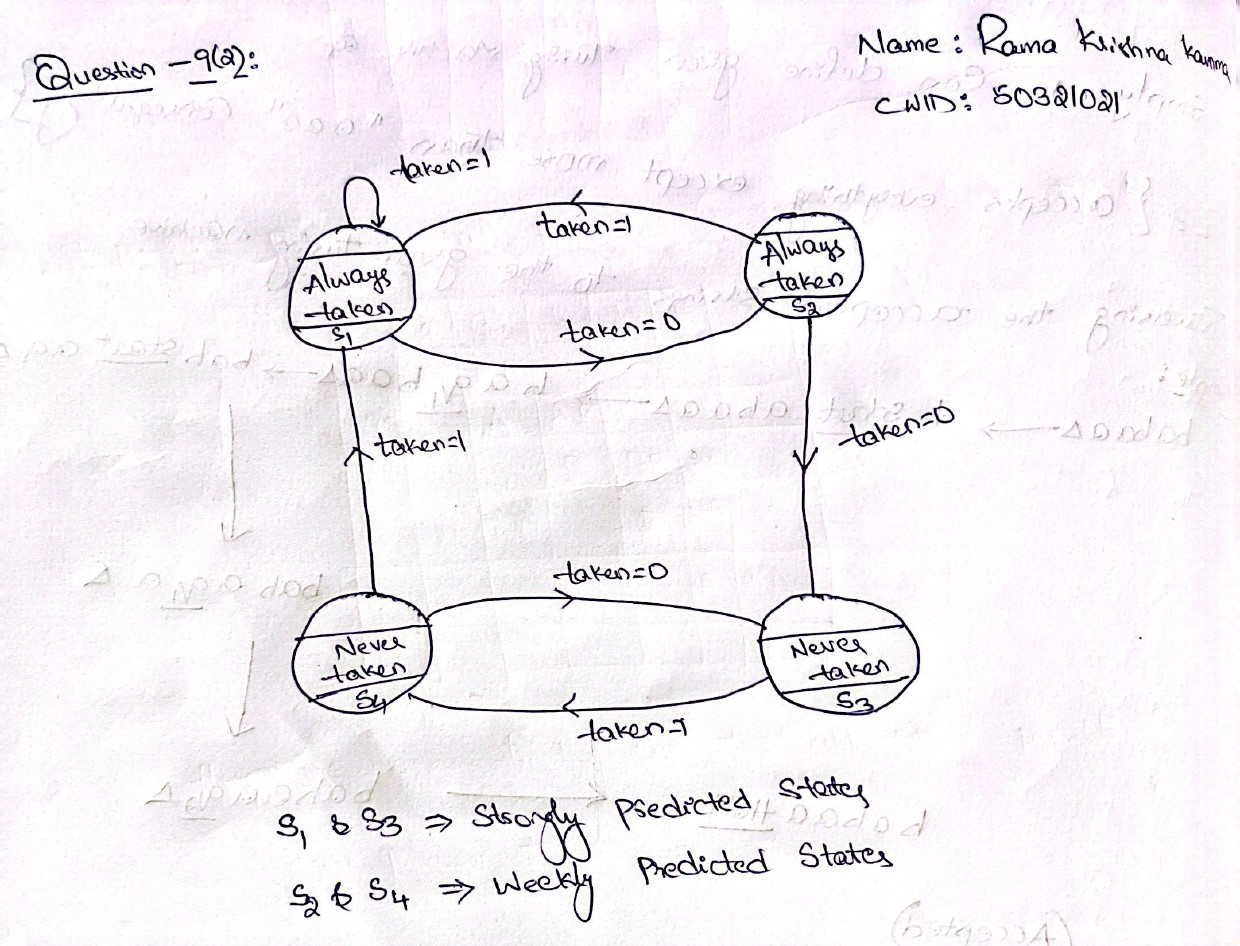 Question - 9(2):
Name : Rama Krishna Kamma
CWID: 50321021
taken=1
taken=1
Always
taken
S1
Always
taken
S2
taken=0
taken=1
taken=0
taken=0
Never
taken
S4
Never
taken
S3
taken=1
S1 & S3 ⇒ Strongly Predicted States
S2 & S4 ⇒ Weekly Predicted States